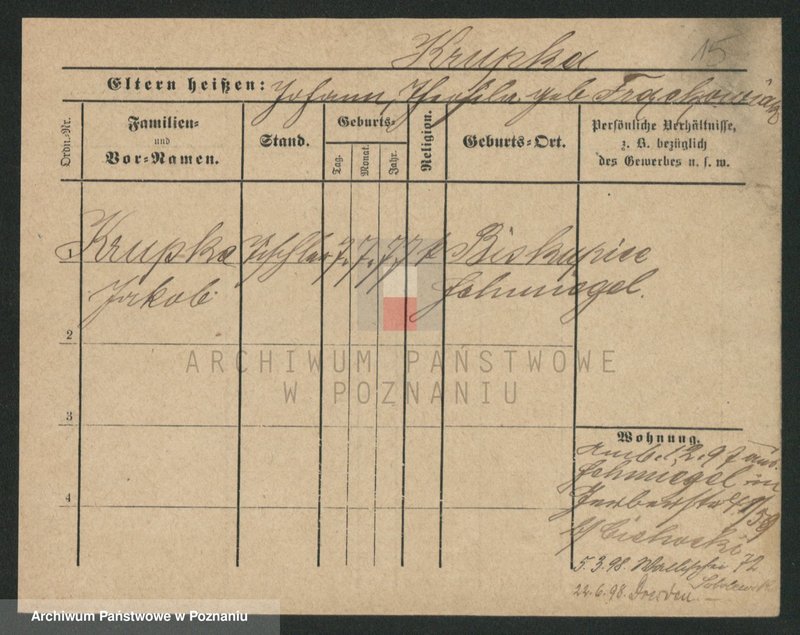 15
Krupka
Eltern heißen: Johann, geb. Frąckowiak
Ordn.-Nr.
Familien-
und
Vor-Namen.
Stand.
Geburts-
Tag.
Monat.
Jahr.
Religion.
Geburts-Ort.
Persönliche Verhältnisse,
z. B. bezüglich
des Gewerbes u. s. w.
1 Krupka Tischler 7. 7. 77 k Biskupice
Jakob Schmiegel.
2
ARCHIWUM PAŃSTWOWE
W POZNANIU
3
Wohnung.
Am 6.12.97 aus
Schmiegel in
Gerberstr.
b/ Cichocki
4
5.3.98. Wallischei 72
22.6.98. Dresden
Archiwum Państwowe w Poznaniu